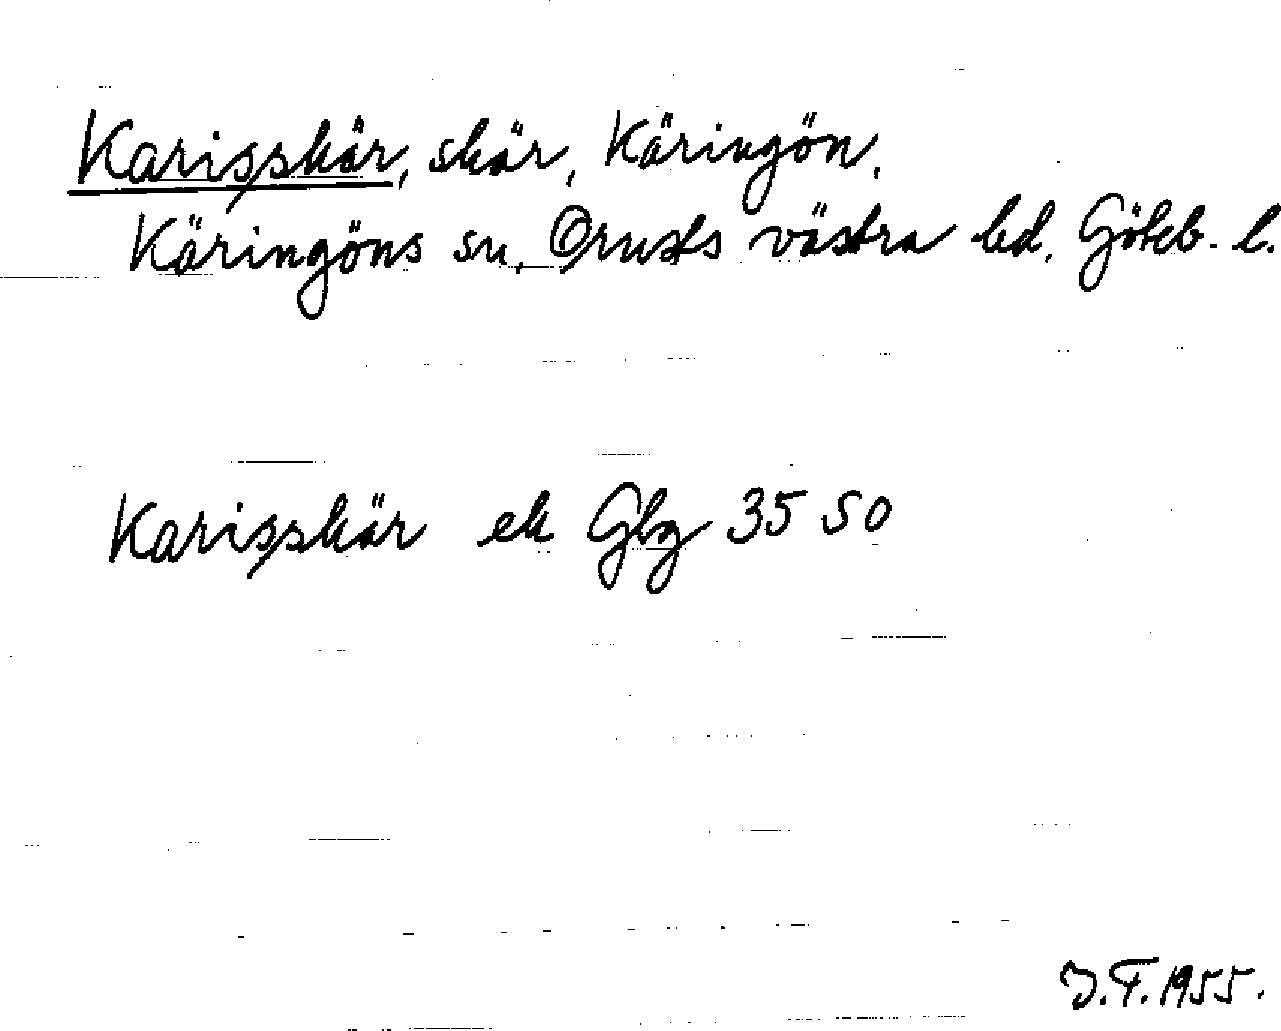 Karisskär, skär, Käringön,
Käringöns sn, Orusts västra hd, Göteb. l.
Karisskär ek Gbg 35 SO
J.F. 1955.